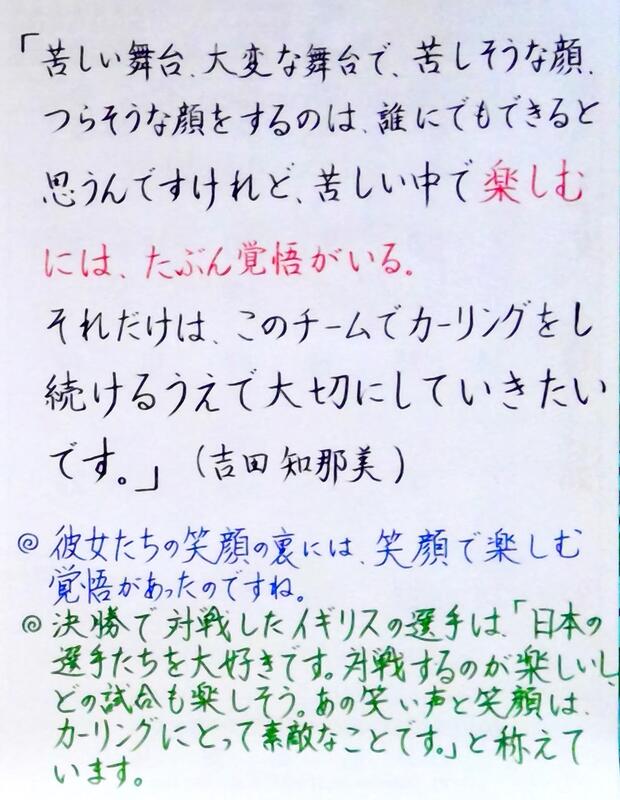 「苦しい舞台、大変な舞台で、苦しそうな顔、
つらそうな顔をするのは、誰にでもできると
思うんですけれど、苦しい中で楽しむ
には、たぶん覚悟がいる。
それだけは、このチームでカーリングをし
続けるうえで大切にしていきたい
です。」(吉田知那美)
◎彼女たちの笑顔の裏には、笑顔で楽しむ
覚悟があったのですね。
◎決勝で対戦したイギリスの選手は、「日本の
選手たちを大好きです。対戦するのが楽しいし、
どの試合も楽しそう。あの笑い声と笑顔は、
カーリングにとって素敵なことです。」と称えて
います。